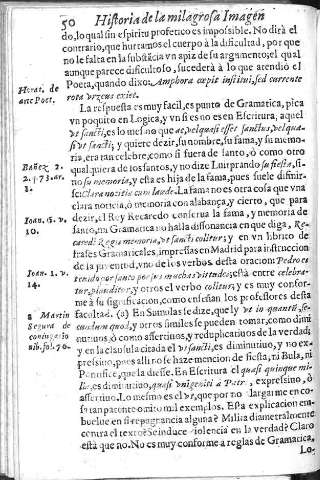 50 Historia de la milagrosa Imagen
do, lo qual sin espiritu profetico es impossible. No dirà el
contrario, que hurtamos el cuerpo à la dificultad, por que
no le falta en la substãcia vn apiz de su argumento; el qual
aunque parece dificultoso, sucederà à lo que atendio el
Poeta, quando dixo: Amphora cœpit institui, sed currente
Horat. de
arte Poet.
rota vrceus exiet.
La respuesta es muy facil, es punto de Gramatica, pica
vn poquito en Logica, y vn si es no es en Escritura, aquel
vt sancti, es lo mesmo que ac, vel quasi esset sanctus, vel qua-
si vt sancti; y quiere dezir, su nombre, su fama, y su memo-
ria, era tan celebre, como si fuera de santo, ò como otro
qualquiera de los santos, y no dize Luitprando su fiesta, si-
Bañez 2.
2. q 73. ar.
no su memoria, y esta es hija de la fama, pues suele difinir-
se: Clara notitia cum laude. La fama no es otra cosa que vna
clara noticia, ò memoria con alabança, y cierto, que para
Ioan. 6. v.
10.
dezir, el Rey Recaredo conserua la fama, y memoria de
santo, mi Gramatica no halla dissonancia en que diga, Re-
caredi Regis memoria, vt sancti colitur; y en vn librito de
frases Gramaticales, impressas en Madrid para instruccion
de la juventud, vno de los verbos desta oracion Pedro es
Ioan. 1. v.
14.
tenido por santo por sus muchas virtudes; està entre celebra-
tur, plauditur, y otros el verbo colitur, y es muy confor-
me à su significacion, como enseñan los professores desta
a Martin
Segura de
facultad. (a) En Sumulas se dize, que ly vt in quantũ, se-
cundum quod, y otros similes se pueden tomar, como dimi
nutiuos, ò como assertiuos, y reduplicatiuos de la verdad;
y en la clausula citada el vt sancti, es diminutiuo, y no ex-
pressiuo, pues alli no se haze mencion de fiesta, ni Bula, ni
Pontifice, que la diesse. En Escritura el quasi quinque mi-
lia, es diminutiuo, quasi vnigeniti à Patre, expressiuo, ò
assertiuo. Lo mesmo es el vt, que por no alargarme en co-
sa tan patente omito mil exemplos. Esta explicacion em-
buelue en si repugnancia alguna? Milita diametralmente
contra el texto? Se induce violencia en la verdad? Claro
està que no. No es muy conforme à reglas de Gramatica,
Lo-